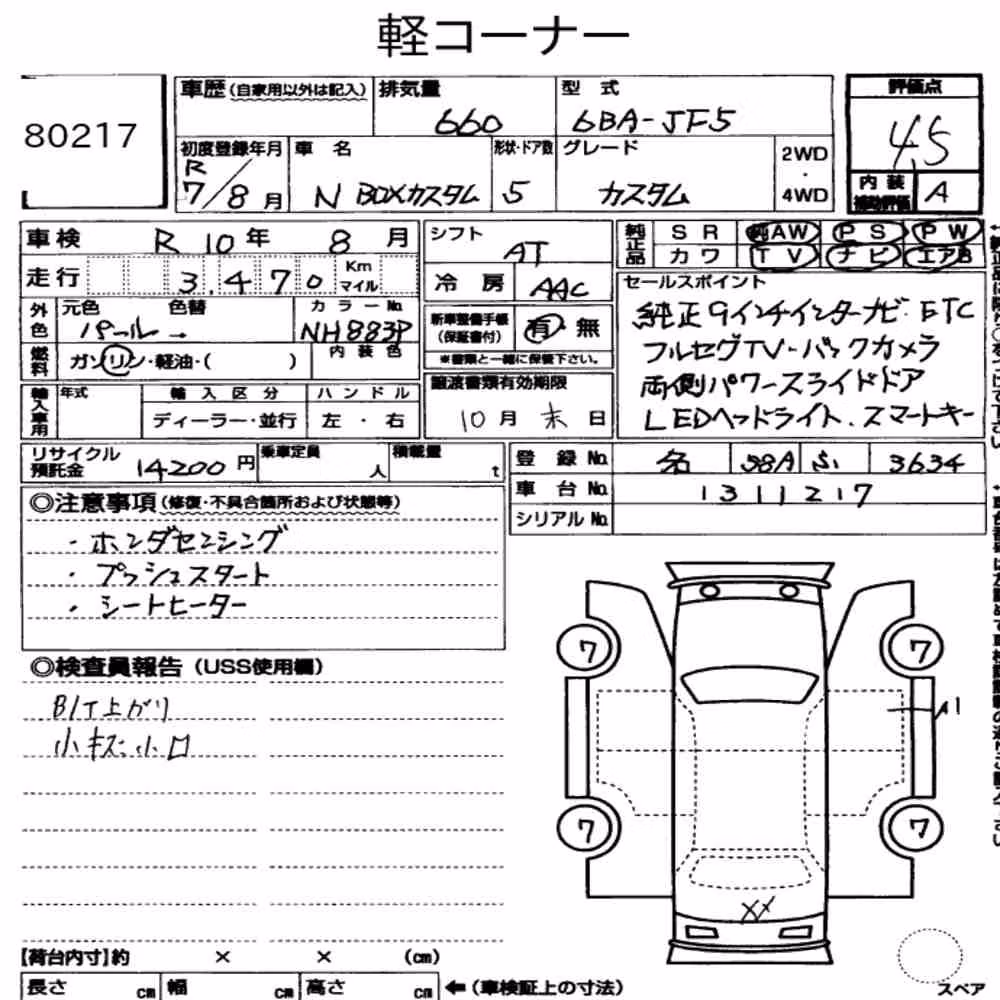 軽コーナー
80217
車歴 (自家用以外は記入) 排気量 660 型式 6BA-JF5 評価点 4.5
初度登録年月 R7/8月 車名 N BOXカスタム 形状・ドア数 5 グレード カスタム 2WD・4WD 内装補助評価 A
車検 R10年 8月 シフト AT 純正品 SR 純AW PS PW
走行 3,470 Km マイル 冷房 AAC カワ TV ナビ エアB
外色 元色 パール 色替 → カラーNo. NH883P 内装色
新車整備手帳(保証書付) 有・無
※書類と一緒に保管下さい。
セールスポイント
純正9インチインターナビ・ETC
フルセグTV・バックカメラ
両側パワースライドドア
LEDヘッドライト.スマートキー
燃料 ガソリン・軽油・( )
輸入車用 年式 輸入区分 ディーラー・並行 ハンドル 左・右
譲渡書類有効期限 10月末日
リサイクル預託金 14200円 乗車定員 人 積載量 t
登録No. 名 58A ふ 3634
車台No. 1311217
シリアルNo.
◎注意事項(修復・不具合箇所および状態等)
・ホンダセンシング
・プッシュスタート
・シートヒーター
◎検査員報告(USS使用欄)
B/T上がり
小キズ小凹
7 7
A1
7 7
XX
スペア
【荷台内寸】約 × × (cm)
長さ cm 幅 cm 高さ cm ←(車検証上の寸法)